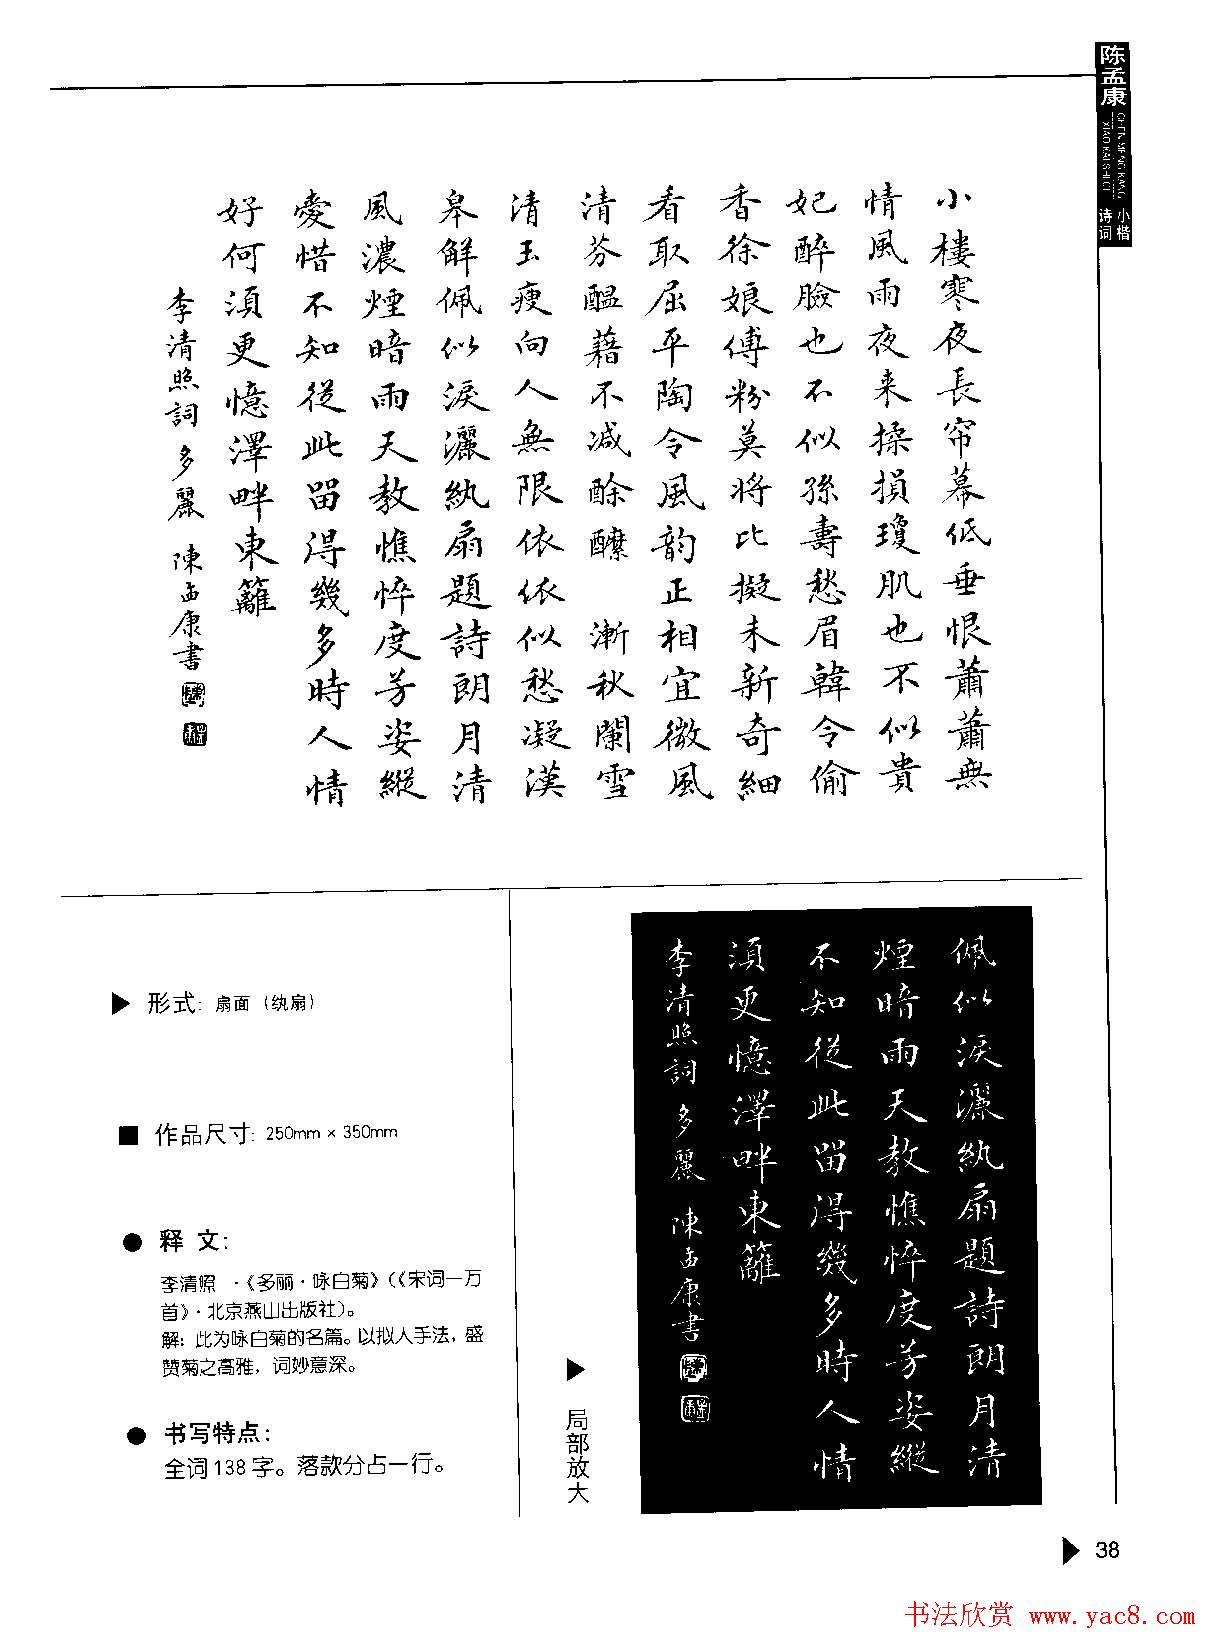 陈孟康
CHEN MENG KANG
XIAO KAI SHI CI
小楷
诗词
小樓寒夜長帘幕低垂恨蕭蕭無
情風雨夜来揉損瓊肌也不似貴
妃醉臉也不似孫壽愁眉韓令偷
香徐娘傅粉莫将比擬未新奇細
看取屈平陶令風韵正相宜微風
清芬醖藉不减酴醿 漸秋闌雪
清玉瘦向人無限依依似愁凝漢
皋鮮佩似淚灑紈扇題詩朗月清
風濃煙暗雨天教憔悴度芳姿縱
愛惜不知從此留得幾多時人情
好何須更憶澤畔東籬
李清照詞 多麗 陳孟康書
▶ 形式: 扇面 (纨扇)
■ 作品尺寸: 250mm × 350mm
● 释 文:
李清照 ·《多丽·咏白菊》(《宋词一万
首》·北京燕山出版社)。
解: 此为咏白菊的名篇。以拟人手法, 盛
赞菊之高雅, 词妙意深。
● 书写特点:
全词138字。落款分占一行。
▶ 局部放大
佩似淚灑紈扇題詩朗月清
煙暗雨天教憔悴度芳姿縱
不知從此留得幾多時人情
須更憶澤畔東籬
李清照詞 多麗 陳孟康書
▶ 38
书法欣赏 www.yac8.com